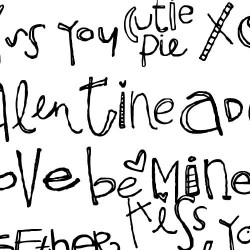 rs you cutie pie XO
alentine ado
ove be mine
ether Kiss yo